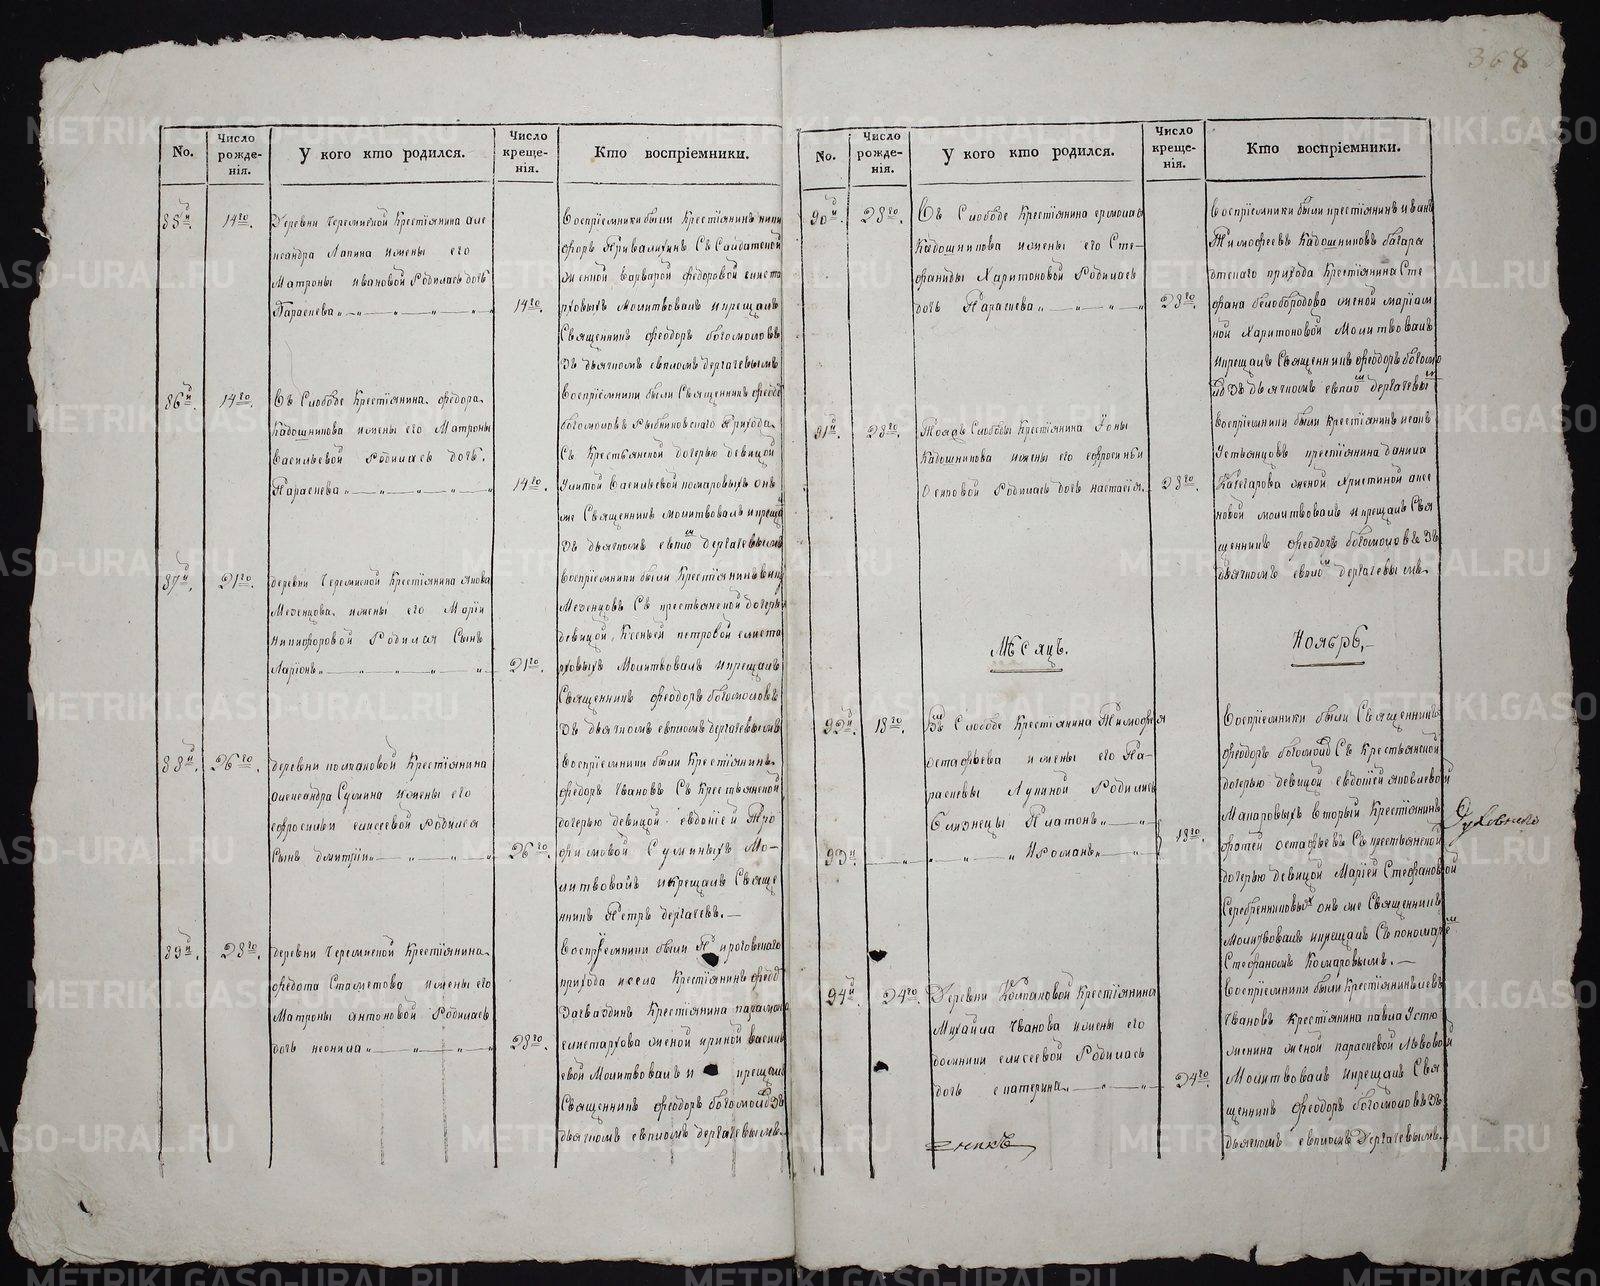 368
No.
Число рожденія.
У кого кто родился.
Число крещенія.
Кто воспріемники.
85й.
14го.
Деревни Черемиской Крестіянина але
ксандра Лапина ижены его
Матроны ивановой Родилась дочь
Параскева
14го.
воспріемники были Крестіянинъ ники
форъ Привалихинъ Съ
женкой варварой федоровой елиста
рховыхъ Молитвовалъ икрещалъ
Священникъ феодоръ богомоловъ
Зъ дьячкомъ евпломъ дергачевымъ
86й.
14го.
Въ Слободе Крестіянина федора
Кадошникова ижены его Матроны
Васильевой Родилась дочь
Параскева
14го.
воспріемники были Священникъ феодо
богомоловъ Рыбниковскаго Прихода
Съ Крестьянской дочерью девицой
Улитой Васильевой комаровыхъ онъ
же Священникъ молитвовалъ икреща
Зъ дьячкомъ евпло дергачевымъ
87й.
21го.
деревни Черемиской Крестіянина якова
Мезенцова ижены его Маріи
никифоровой Родился Сынъ
Ларіонъ
21го.
воспріемники были Крестіянинъ
Мезенцовъ Съ крестьянской дочерь
девицой Ксеньей петровой елиста
рховыхъ Молитвовалъ икрещалъ
Священникъ феодоръ богомоловъ
Зъ дьячкомъ евпломъ дергачевымъ
88й.
26го.
деревни колпаковой Крестіянина
Олександра Сулина ижены его
ефросиньи елисеевой Родился
Сынъ дмитрій
26го.
воспріемники были Крестіянинъ
федоръ Ивановъ Съ Крестьянской
дочерью девицой евдокіей Тро
фимовой Сулиныхъ Мо-
литвовалъ икрещалъ Священ
никъ Петръ дергачевъ.
89й.
28го.
деревни Черемиской Крестіянина
федота Стахметова ижены его
Матроны антоновой Родилась
дочь неонила
28го.
воспріемники были
прихода исела Крестіянинъ феодо
Загваздинъ Крестіянина
елистархова женой ириной васильевой
Молитвовалъ и крещалъ
Священникъ феодоръ богомолов Зъ
дьячкомъ евпломъ дергачевымъ.
No.
Число рожденія.
У кого кто родился.
Число крещенія.
Кто воспріемники.
90й.
28го.
Въ Слободе Крестіянина ермолая
Кадошникова ижены его Сте-
фаниды Харитоновой Родилась
дочь Параскева
28го.
воспріемники были крестіянинъ иванъ
Тимофеевъ Кадошниковъ багаря
дтскаго прихода Крестіянина Сте
фана белобородова женой маріам
ной Харитоновой Молитвовалъ
икрещалъ Священникъ феодоръ богомо
Зъ дьячкомъ евпло дергачевы
91й.
28го.
Тояжъ Слободы Крестіянина Іоны
Кадошникова ижены его ефросиньи
Осиповой Родилась дочь настасія.
28го.
воспріемники были крестіянинъ исакъ
Устьянцовъ крестіянина данила
женой Христиной алек
новой молитвовалъ икрещалъ Свя
щенникъ феодоръ богомоловъ Зъ
дьячкомъ евпло дергачевымъ.
Мѣсяцъ.
Ноябрь.
92й.
18го.
Въ Слободе Крестіянина Тимофея
остафьева ижены его Па-
раскевы Лукиной Родились
Близнецы Платонъ
93й.
ироманъ
18го.
воспріемники были Священникъ
феодоръ богомолов Съ Крестьянской
дочерью девицой евдокіей яковлевой
Макаровыхъ вторый Крестіянинъ
фотей остафьевъ Съ крестьянской
дочерью девицой Маріей Стефановой
Серебренниковых онъ же Священникъ
Молитвовалъ икрещалъ Съ пономаре
Стефаномъ Комаровымъ.
94й.
24го.
Деревни Колпаковой Крестіянина
Михайла Иванова ижены его
домники елисеевой Родилась
дочь екатерина
24го.
воспріемники были Крестіянинъ левъ
Ивановъ Крестіянина павла Устю
женина женой параскевой Львовой
Молитвовалъ икрещалъ Свя
щенникъ феодоръ богомоловъ Зъ
дьячкомъ евпломъ Дергачевымъ.